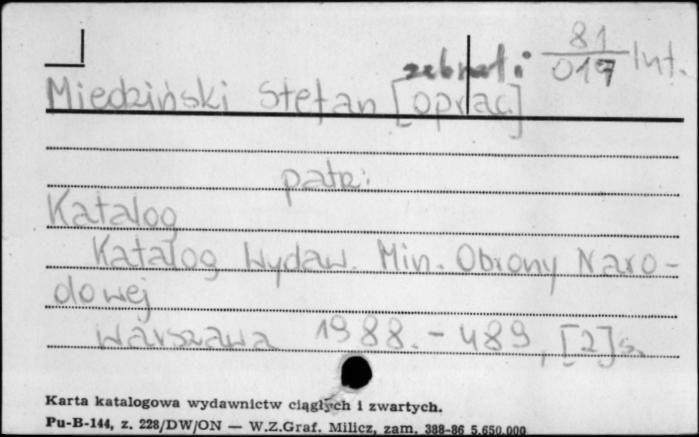 81
zebrał i 017 Int.
Miedziński Stefan [oprac.]
patrz:
Katalog
Katalog Wydaw. Min. Obrony Naro-
dowej
Warszawa 1988. - 489, [2] s.
Karta katalogowa wydawnictw ciągłych i zwartych.
Pu-B-144, z. 228/DW/ON — W.Z.Graf. Milicz, zam. 388-86 5.650.000